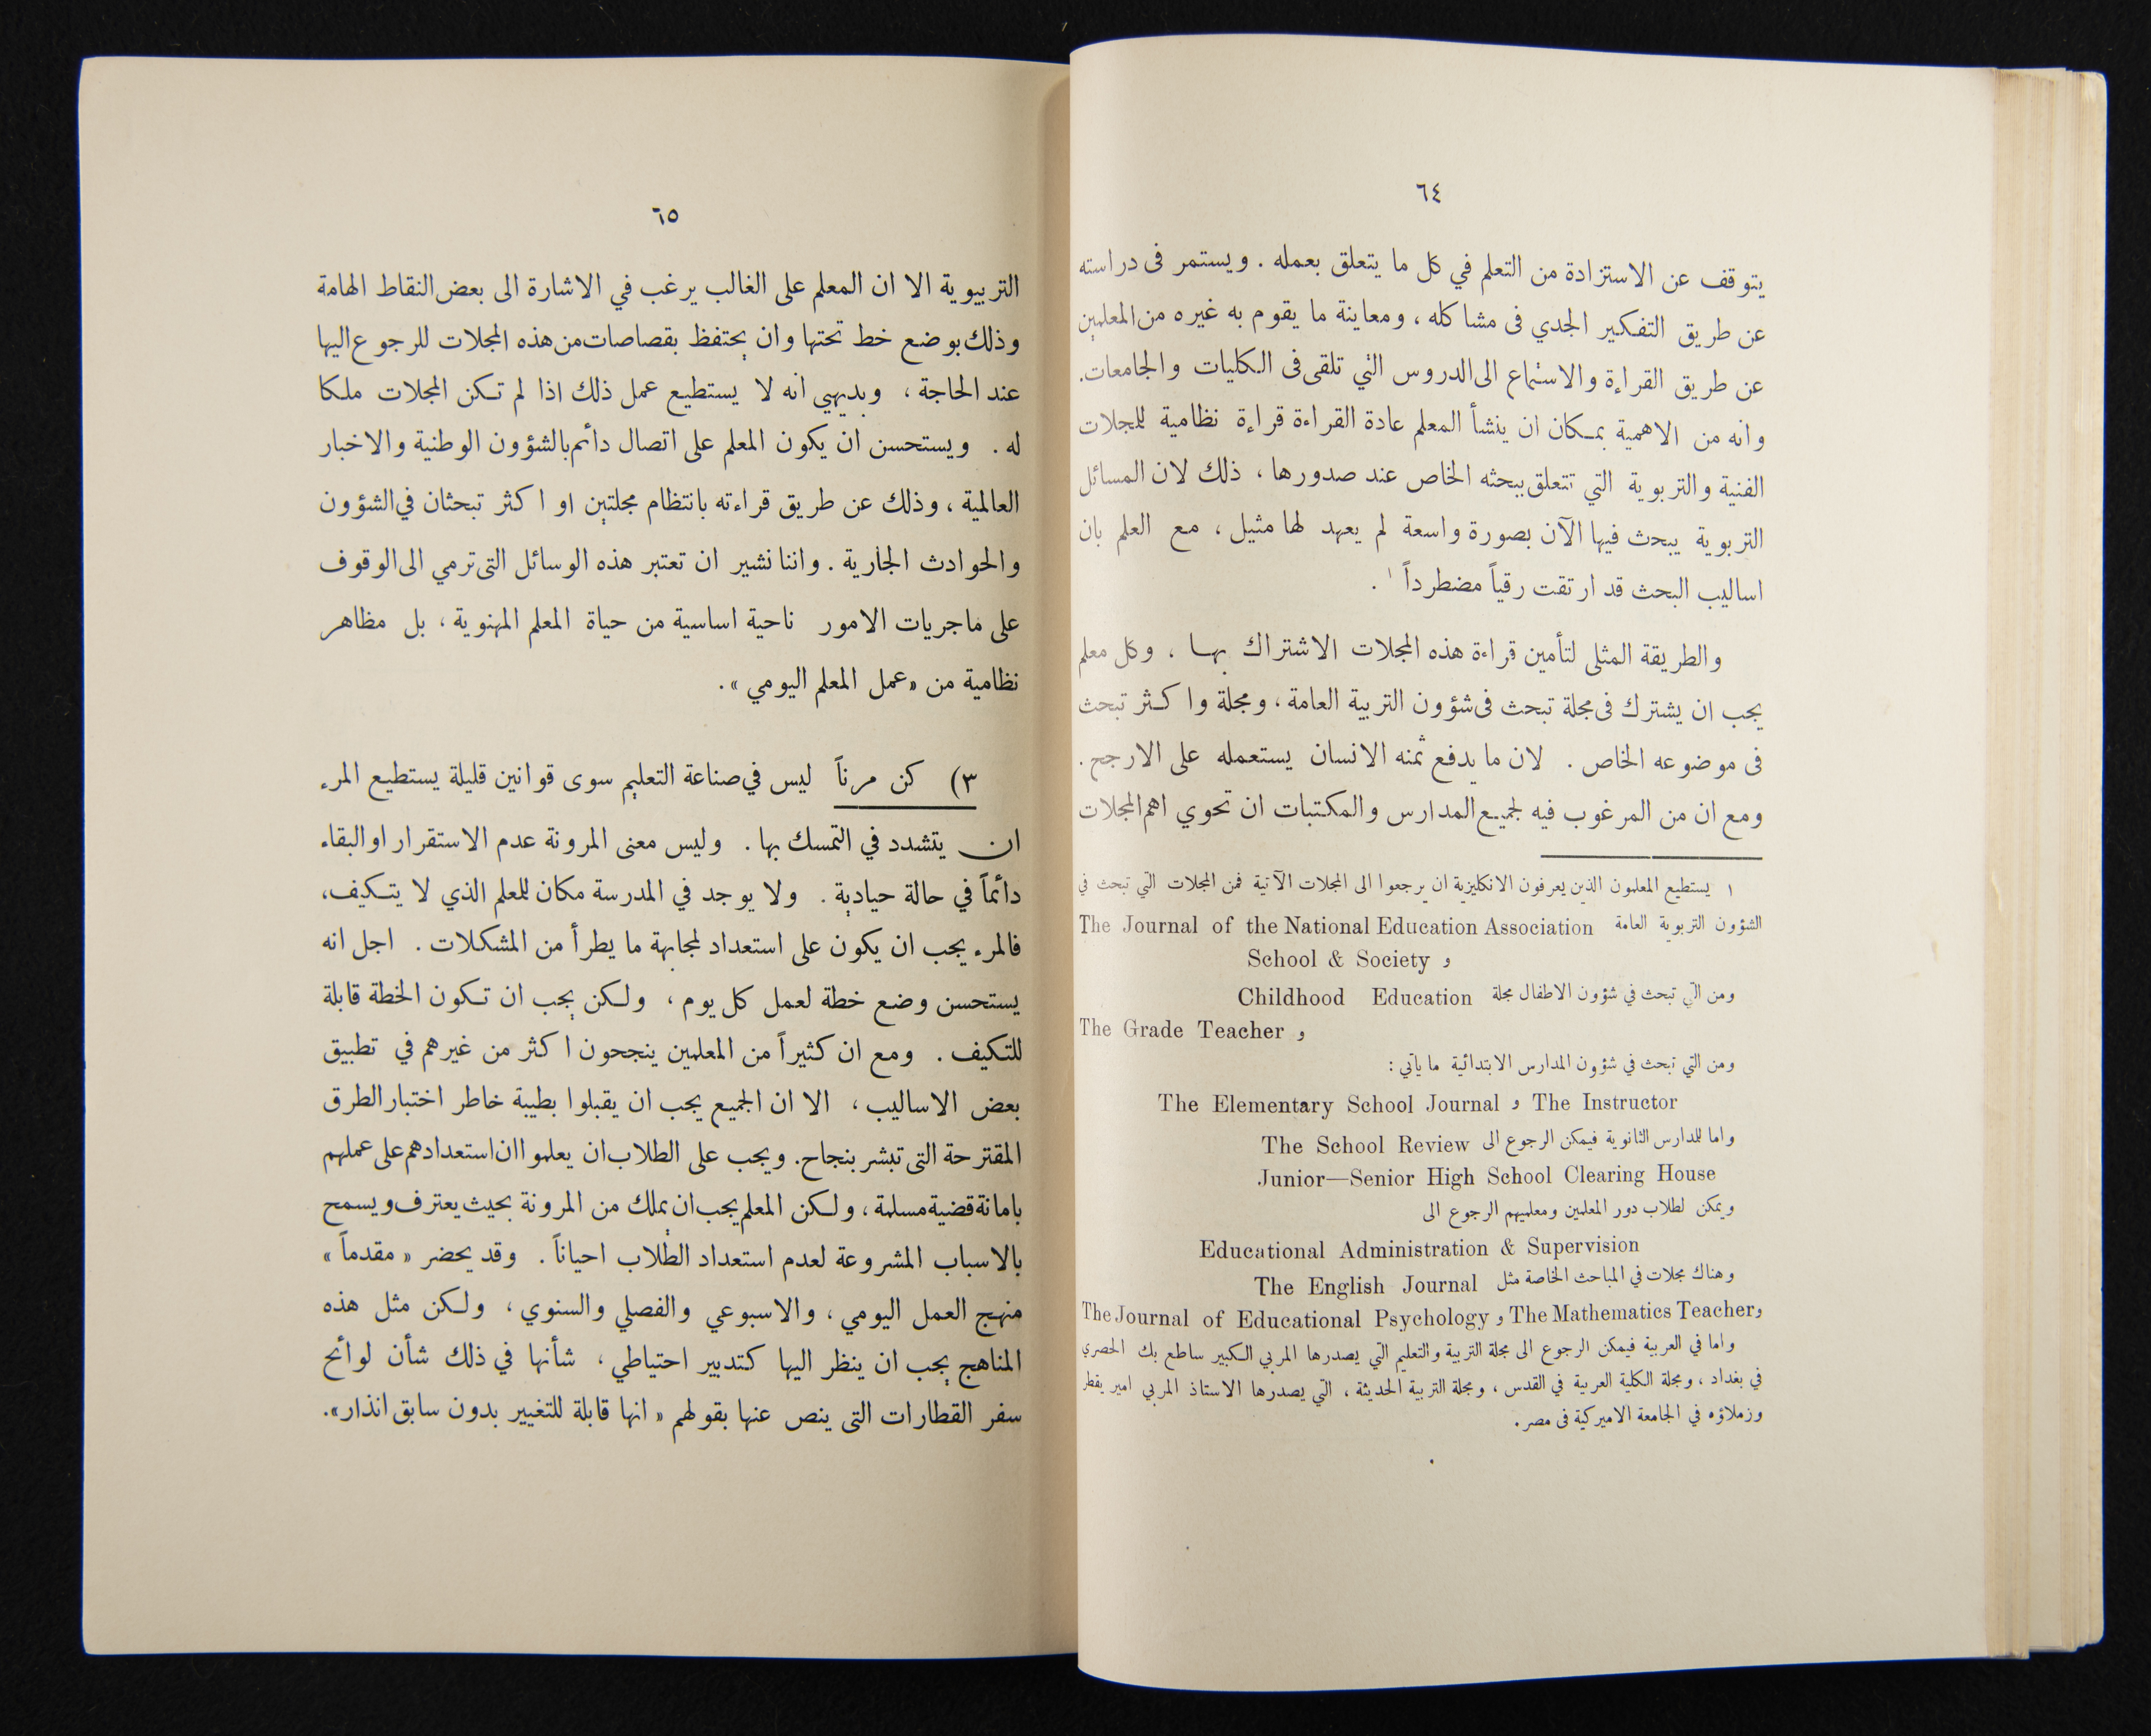 ٦٤
يتوقف عن الاستزادة من التعلم في كل ما يتعلق بعمله . ويستمر فى دراسته
عن طريق التفكير الجدي فى مشاكله ، ومعاينة ما يقوم به غيره من المعلمين
عن طريق القراءة والاستماع الى الدروس التي تلقى فى الكليات والجامعات.
وانه من الاهمية بمكان ان ينشأ المعلم عادة القراءة قراءة نظامية للمجلات
الفنية والتربوية التي تتعلق ببحثه الخاص عند صدورها ، ذلك لان المسائل
التربوية يبحث فيها الآن بصورة واسعة لم يعهد لها مثيل ، مع العلم بان
اساليب البحث قد ارتقت رقياً مضطرداً ١ .
والطريقة المثلى لتأمين قراءة هذه المجلات الاشتراك بها . وكل معلم
يجب ان يشترك فى مجلة تبحث فى شؤون التربية العامة ، ومجلة واكثر تبحث
فى موضوعه الخاص . لان ما يدفع ثمنه الانسان يستعمله على الارجح .
ومع ان من المرغوب فيه لجميع المدارس والمكتبات ان تحوي اهم المجلات
١ يستطيع المعلمون الذين يعرفون الانكليزية ان يرجعوا الى المجلات الآتية فمن المجلات التي تبحث في
الشؤون التربوية العامة The Journal of the National Education Association
و School & Society
ومن التي تبحث في شؤون الاطفال مجلة Childhood Education
و The Grade Teacher
ومن التي تبحث في شؤون المدارس الابتدائية ما يأتي :
The Elementary School Journal و The Instructor
واما للمدارس الثانوية فيمكن الرجوع الى The School Review
Junior—Senior High School Clearing House
ويمكن لطلاب دور المعلمين ومعلميهم الرجوع الى
Educational Administration & Supervision
وهناك مجلات في المباحث الخاصة مثل The English Journal
The Journal of Educational Psychology و The Mathematics Teacher و
واما في العربية فيمكن الرجوع الى مجلة التربية والتعليم التي يصدرها المربي الكبير ساطع بك الحصري
في بغداد ، ومجلة الكلية العربية في القدس ، ومجلة التربية الحديثة ، التي يصدرها الاستاذ المربي امير بقطر
وزملاؤه في الجامعة الاميركية فى مصر .
٦٥
التربيوية الا ان المعلم على الغالب يرغب في الاشارة الى بعض النقاط الهامة
وذلك بوضع خط تحتها وان يحتفظ بقصاصات من هذه المجلات للرجوع اليها
عند الحاجة ، وبديهي انه لا يستطيع عمل ذلك اذا لم تكن المجلات ملكا
له . ويستحسن ان يكون المعلم على اتصال دائم بالشؤون الوطنية والاخبار
العالمية ، وذلك عن طريق قراءته بانتظام مجلتين او اكثر تبحثان في الشؤون
والحوادث الجارية . واننا نشير ان تعتبر هذه الوسائل التى ترمي الى الوقوف
على ماجريات الامور ناحية اساسية من حياة المعلم المهنوية ، بل مظاهر
نظامية من « عمل المعلم اليومي » .
٣) كن مرناً ليس في صناعة التعليم سوى قوانين قليلة يستطيع المرء
ان يتشدد في التمسك بها . وليس معنى المرونة عدم الاستقرار او البقاء
دائماً في حالة حيادية . ولا يوجد في المدرسة مكان للمعلم الذي لا يتكيف،
فالمرء يجب ان يكون على استعداد لمجابهة ما يطرأ من المشكلات . اجل انه
يستحسن وضع خطة لعمل كل يوم ، ولكن يجب ان تكون الخطة قابلة
للتكيف . ومع ان كثيراً من المعلمين ينجحون اكثر من غيرهم في تطبيق
بعض الاساليب ، الا ان الجميع يجب ان يقبلوا بطيبة خاطر اختبار الطرق
المقترحة التى تبشر بنجاح. ويجب على الطلاب ان يعلموا ان استعدادهم على عملهم
بامانة قضية مسلمة ، ولكن المعلم يجب ان يملك من المرونة بحيث يعترف ويسمح
بالاسباب المشروعة لعدم استعداد الطلاب احياناً . وقد يحضر « مقدماً »
منهج العمل اليومي ، والاسبوعي والفصلي والسنوي ، ولكن مثل هذه
المناهج يجب ان ينظر اليها كتدبير احتياطي ، شأنها في ذلك شأن لوائح
سفر القطارات التى ينص عنها بقولهم « انها قابلة للتغيير بدون سابق انذار».